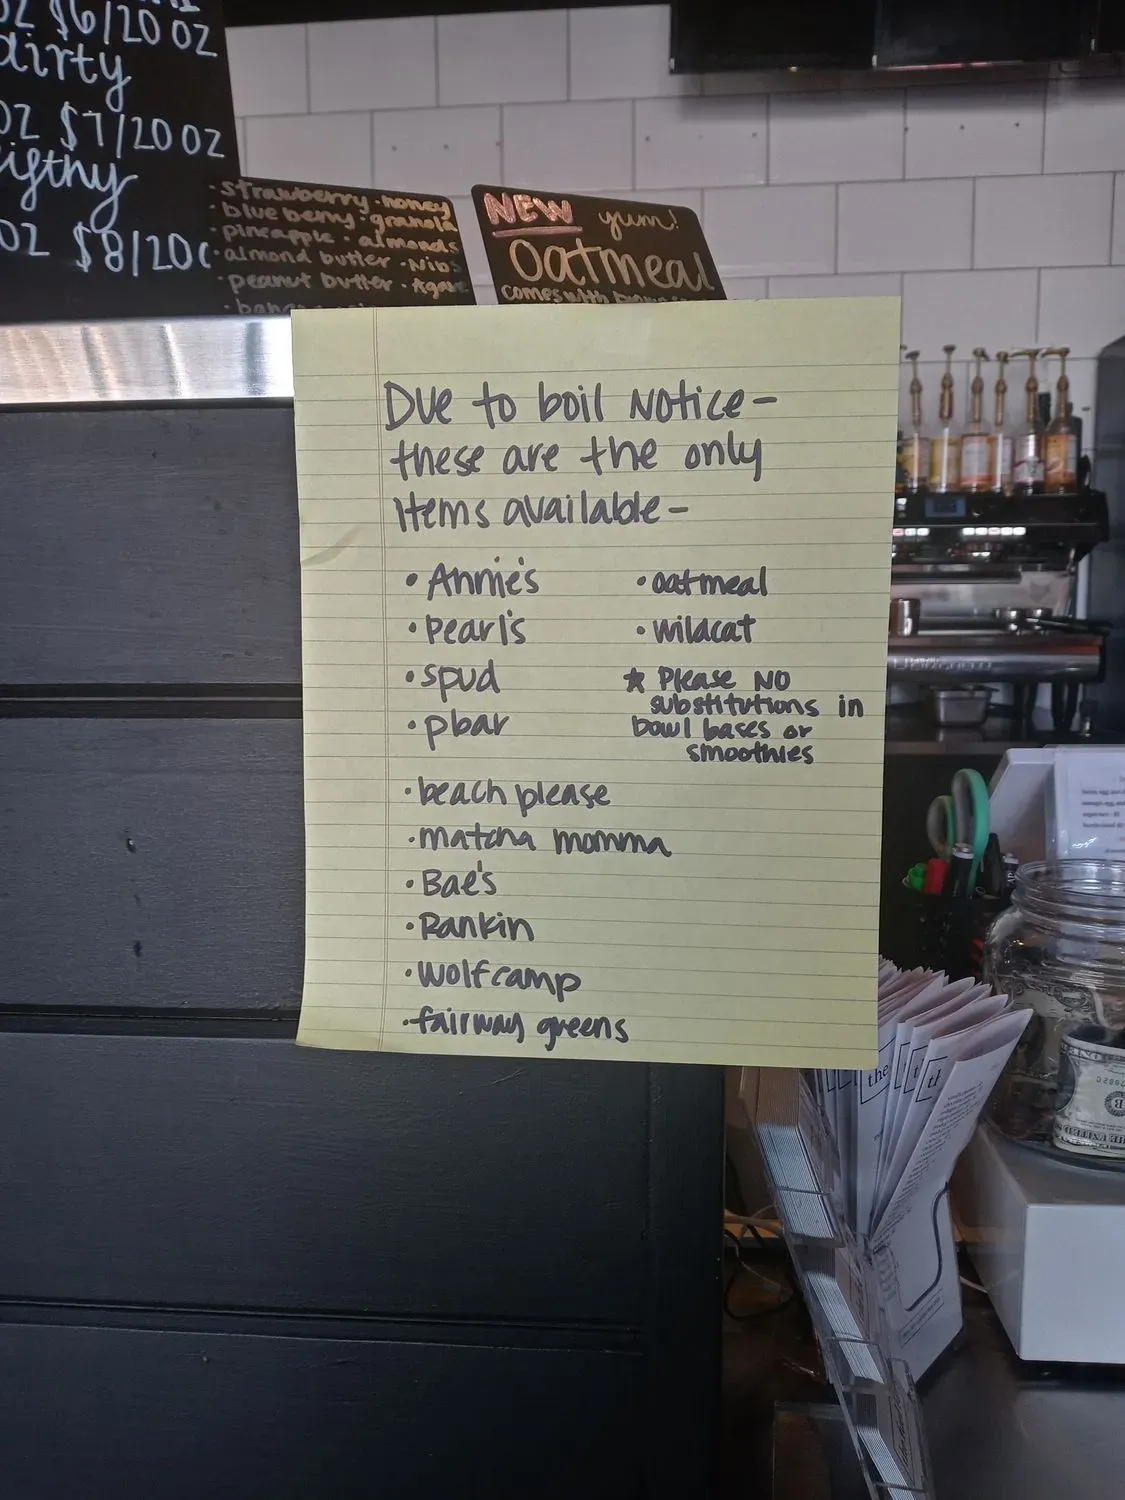 OZ $6/20 OZ
dirty
OZ $7/20 OZ
OZ $8/20
· strawberry · honey
· blueberry · granola
· pineapple · almonds
· almond butter · Nibs
· peanut butter · Agave
NEW yum!
Oatmeal
comes with
Due to boil Notice-
these are the only
items available-
· Annie's
· pearl's
· spud
· pbar
· beach please
· matcha momma
· Bae's
· Rankin
· wolfcamp
· fairway greens
· oatmeal
· wildcat
☆ Please NO
substitutions in
bowl bases or
smoothies
the